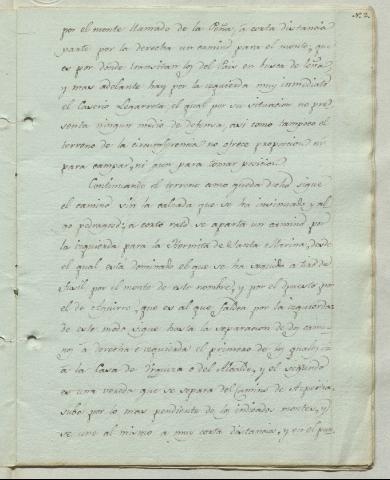 Nº 2.
por el monte llamado de la Peña, a corta distancia
parte por la derecha un camino para el monte, que
es por donde transitan los del Pais en busca de leña,
y mas adelante hay por la izquierda muy inmediato
el Caserio Legarreta, el qual por su situacion no pre
senta ningun medio de defensa, asi como tampoco el
terreno de la circunferencia no ofrece proporcion ni
para campar, ni aun para tomar posicion.
Continuando el terreno como queda dicho sigue
el camino sin la calzada que se ha insinuado y al
go pedregoso; a corto rato se aparta un camino por
la izquierda para la Hermita de Santa Marina, desde
el qual esta dominado el que se ha seguido a tiro de
fusil por el monte de este nombre, y por el opuesto por
el de Eguirre, que es al que faldea por la izquierda;
de este modo sigue hasta la separacion de dos cami-
nos a derecha e izquierda el primero de los quales va
a la Casa de Urquiza o del Alcalde, y el segundo
es una vereda que se separa del camino de Azpeitia,
sube por lo mas pendiente de los indicados montes, y
se une al mismo a muy corta distancia, y en el pun